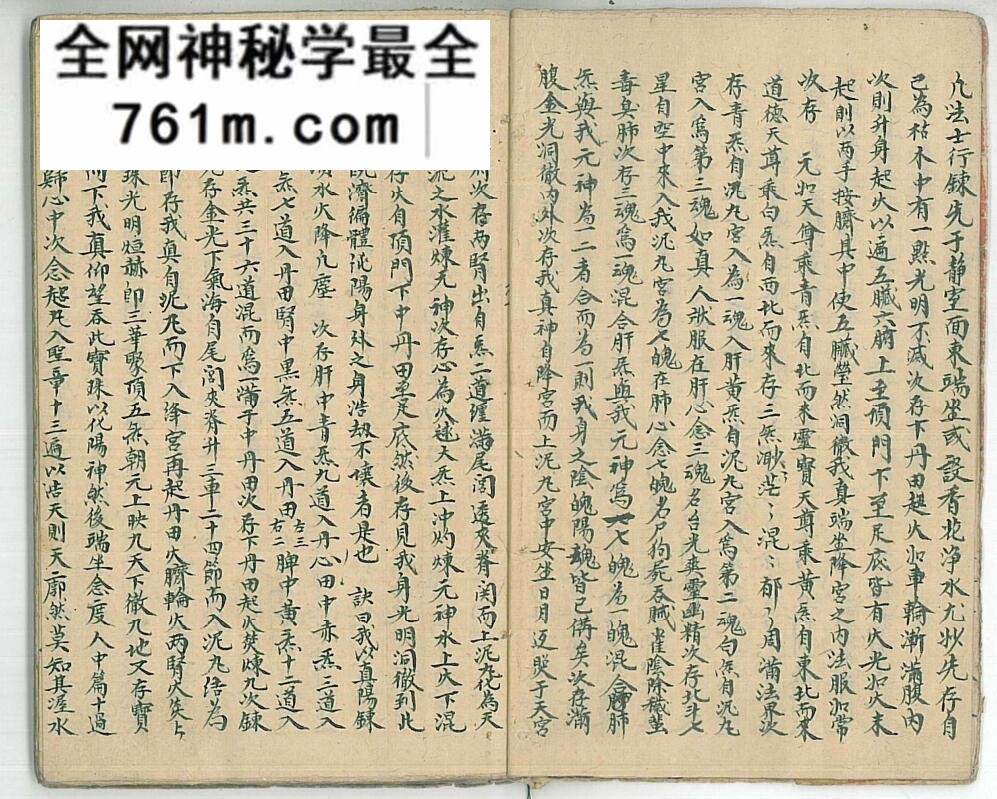 全网神秘学最全
761m.com
凡法士行鍊先于静室面東端坐或設香花净水尤妙先存自
己為枯木中有一㸃光明不滅次存下丹田起火如車輪漸滿腹内
次則升身起火以遍五臟六腑上至頂門下至足底皆有火光如火末
起則以两手按臍其中使五臟瑩然洞徹我真端坐降宮之内法服如常
次存 元始天尊乘青炁自北而来靈寶天尊乘黄炁自東北而来
道德天尊乘白炁自西北而来存三炁渺〻茫〻混〻郁〻周滿法界次
存青炁自泥丸宫入為一魂入肝黄炁自泥丸宫入為第二魂白炁自泥丸
宫入為第三魂如真人狀服在肝心念三魂名台光爽靈幽精次存北斗七
星自空中來入我泥丸宫為七魄在肺心念七魄名尸狗屍吞贼雀陰除穢蜚
毒臭肺次存三魂為一魂混合肝炁與我元神為七魄為一魄混合肺
炁與我元神為一二者合而為一則我身之陰魄陽魂皆已備矣次存滿
腹金光洞徹内外次存我真神自降宫而上泥丸宫中安坐日月返照于天宫
次存两腎出自炁二道瑆滿尾閭透夾脊関而上泥丸化為天
之水灌煉元神次存心為火㷋大炁上冲灼煉元神水上火下混
火自頂門下中丹田至足底然後存見我身光明洞徹到此
既濟徧體沌陽身外之身浩刼不壞者是也 訣曰我以真陽鍊
水火降九塵 次存肝中青炁九道入丹心田中赤炁三道入
炁七道入丹田腎中黑炁五道入丹田左三右二脾中黄炁十二道入
炁共三十六道混而為一蒲于中丹田次存下丹田起火焚煉九次鍊
存金光下氣海自尾閭夾脊升三車二十四節而入泥丸结為
即存我真自泥丸而下入绛宫再起丹田火臍輪火两腎火炎上
珠光明烜赫即三華聚頂五炁朝元上映九天下徹九地又存寶
而下我真仰望吞此寶珠以化陽神然後端坐念度人中篇十過
歸心中次念起玒入聖章十三遍以浩天則天廓然莫知其涯水